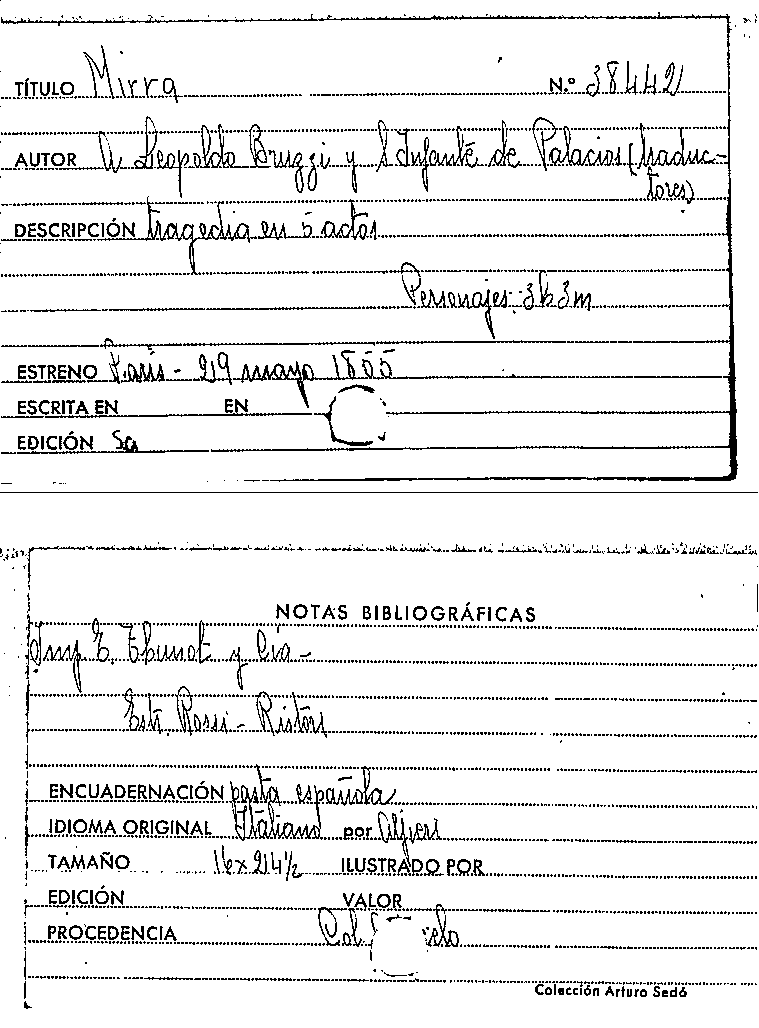 TÍTULO Mirra N.º 38442
AUTOR A Leopoldo Bruzzi y S Infante de Palacios (traduc-
tores)
DESCRIPCIÓN tragedia en 5 actos
Personajes: 3h3m
ESTRENO París - 29 mayo 1855
ESCRITA EN EN
EDICIÓN
NOTAS BIBLIOGRÁFICAS
Imp E. Thunot y Cía -
Estr. Rossi - Ristori
ENCUADERNACIÓN pasta española
IDIOMA ORIGINAL Italiano por Alfieri
TAMAÑO 16 x 24 ½ ILUSTRADO POR
EDICIÓN VALOR
PROCEDENCIA Col
Colección Arturo Sedó